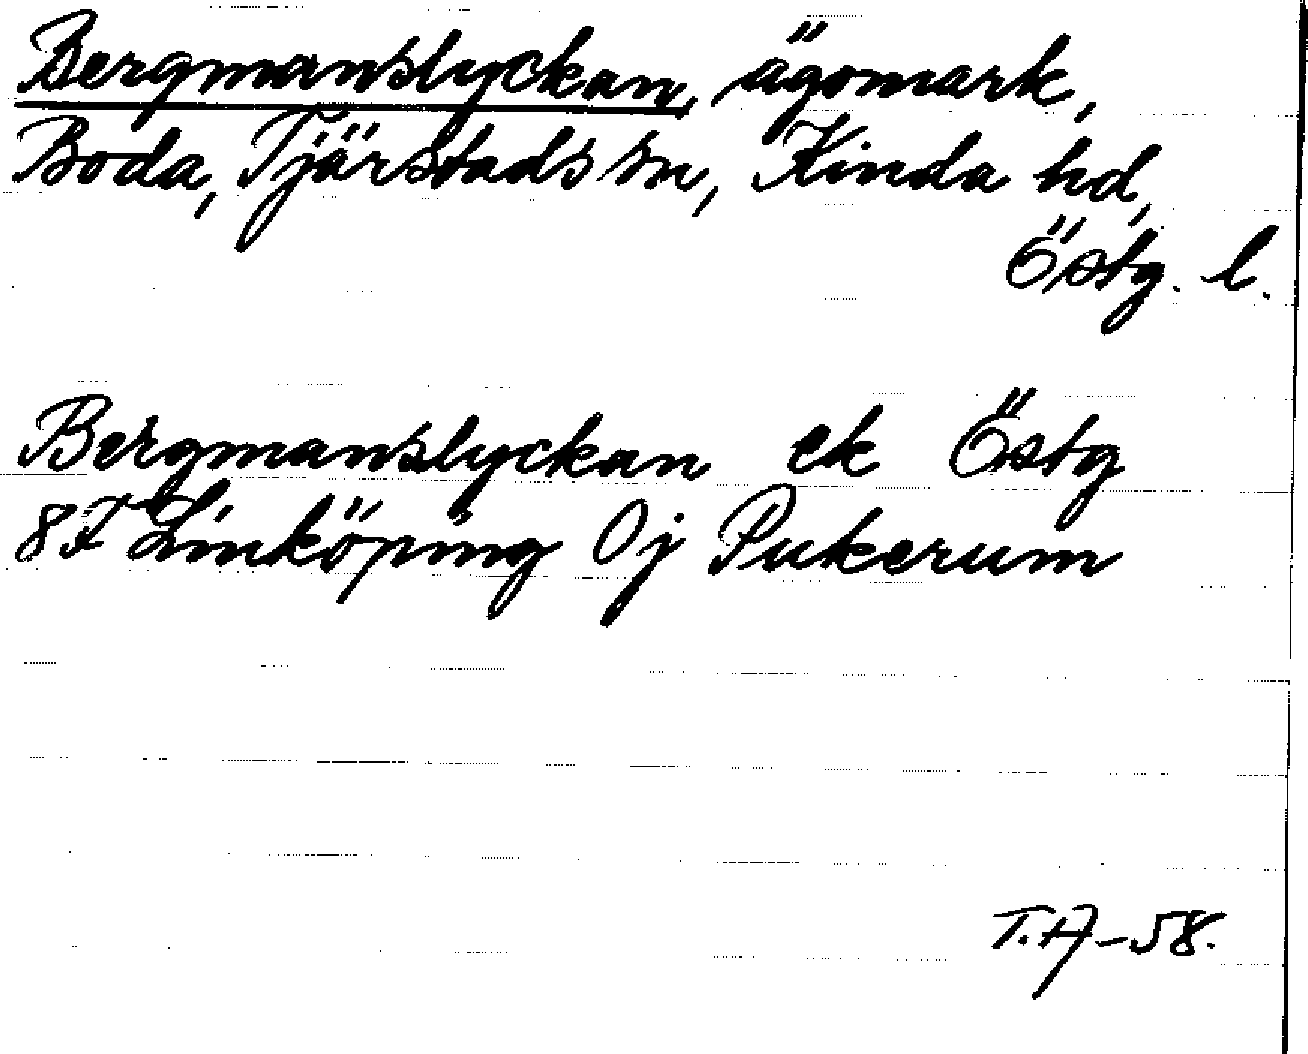 Bergmanslyckan, ägomark,
Boda, Tjärstads sn, Kinda hd,
Östg. l.
Bergmanslyckan ek Östg
8F Linköping Oj Pukerum
T.A-58.